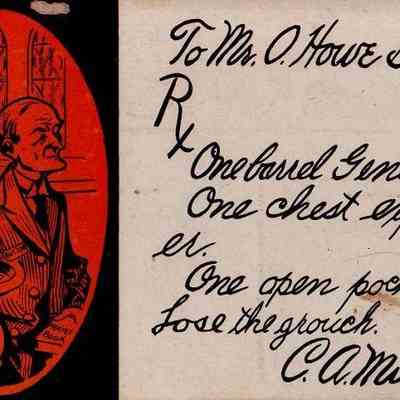 To Mr. O. Howe
Rx
One barrel Gen
One chest ex
er.
One open poc
Lose the grouch.
C. A. M
PRAYER
BOOK